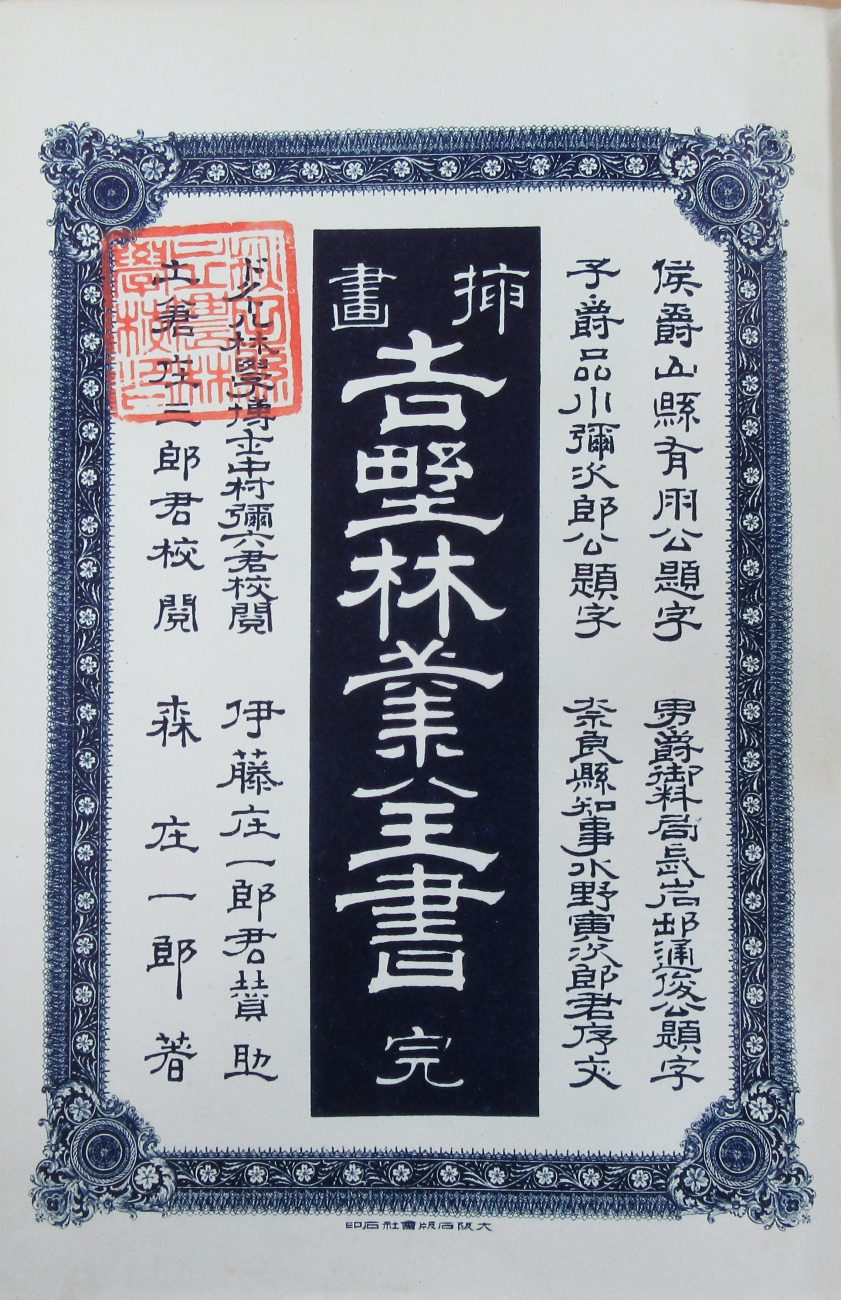 侯爵山縣有朋公題字
男爵御料局長岩邨通俊公題字
子爵品川彌次郎公題字
奈良縣知事水野寅次郎君序文
挿畫
吉野林業全書
完
ドクトル林學博士中村彌六君校閲
伊藤庄一郎君賛助
土倉庄三郎君校閲
森庄一郎著
大阪石版會社石印